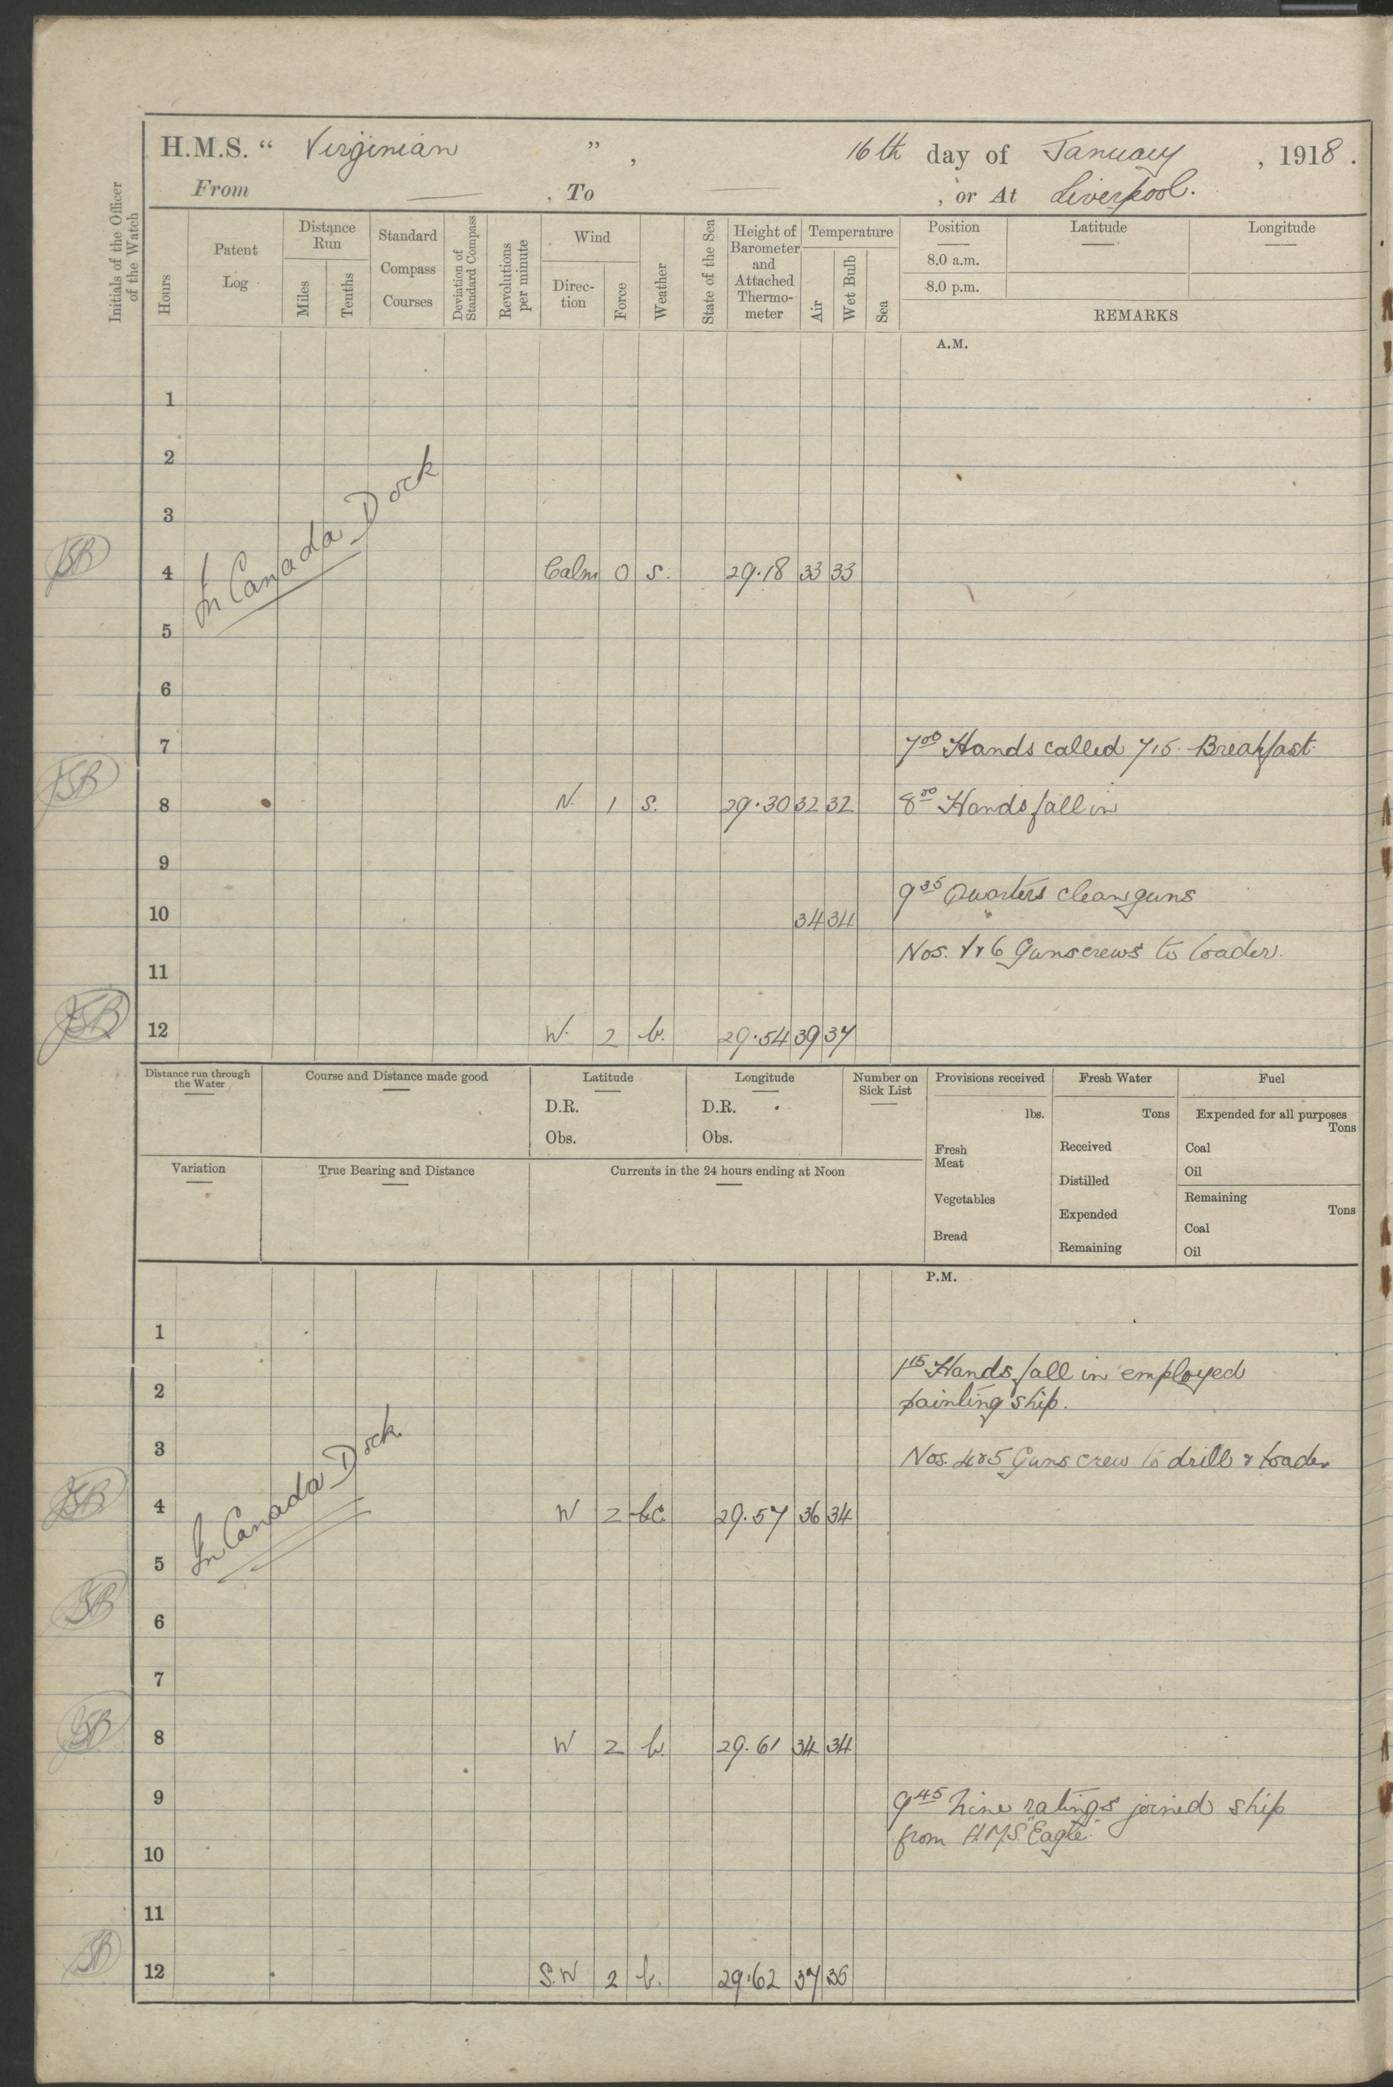 H.M.S. “ Virginian ” , 16th day of January , 1918 .
From — , To — , or At Liverpool.
Initials of the Officer of the Watch
Hours
Patent Log
Distance Run
Miles
Tenths
Standard Compass Courses
Deviation of Standard Compass
Revolutions per minute
Wind
Direc-tion
Force
Weather
State of the Sea
Height of Barometer and Attached Thermo-meter
Temperature
Air
Wet Bulb
Sea
Position Latitude Longitude
8.0 a.m.
8.0 p.m.
REMARKS
A.M.
1
2
3
In Canada Dock
4 Calm 0 s. 29.18 33 33
5
6
7 7 00 Hands called 7 15. Breakfast.
8 N. 1 s. 29.30 32 32 8 00 Hands fall in
9
9 35 Quarters clean guns
10 34 34
Nos. 1 & 6 Guns crews to loader.
11
12 W. 2 b. 29.54 39 37
Distance run through the Water
Course and Distance made good
Latitude
D.R.
Obs.
Longitude
D.R.
Obs.
Number on Sick List
Provisions received
lbs.
Fresh Meat
Vegetables
Bread
Fresh Water
Tons
Received
Distilled
Expended
Remaining
Fuel
Expended for all purposes
Tons
Coal
Oil
Remaining
Tons
Coal
Oil
Variation
True Bearing and Distance
Currents in the 24 hours ending at Noon
P.M.
1
1 15 Hands fall in employed
2 painting ship.
3 Nos. 4 & 5 Guns crew to drill & loader
In Canada Dock.
4 W 2 bc 29.57 36 34
5
6
7
8 W 2 b 29.61 34 34
9 9 45 Nine ratings joined ship
from H.M.S. "Eagle"
10
11
12 S.W 2 b. 29.62 37 35